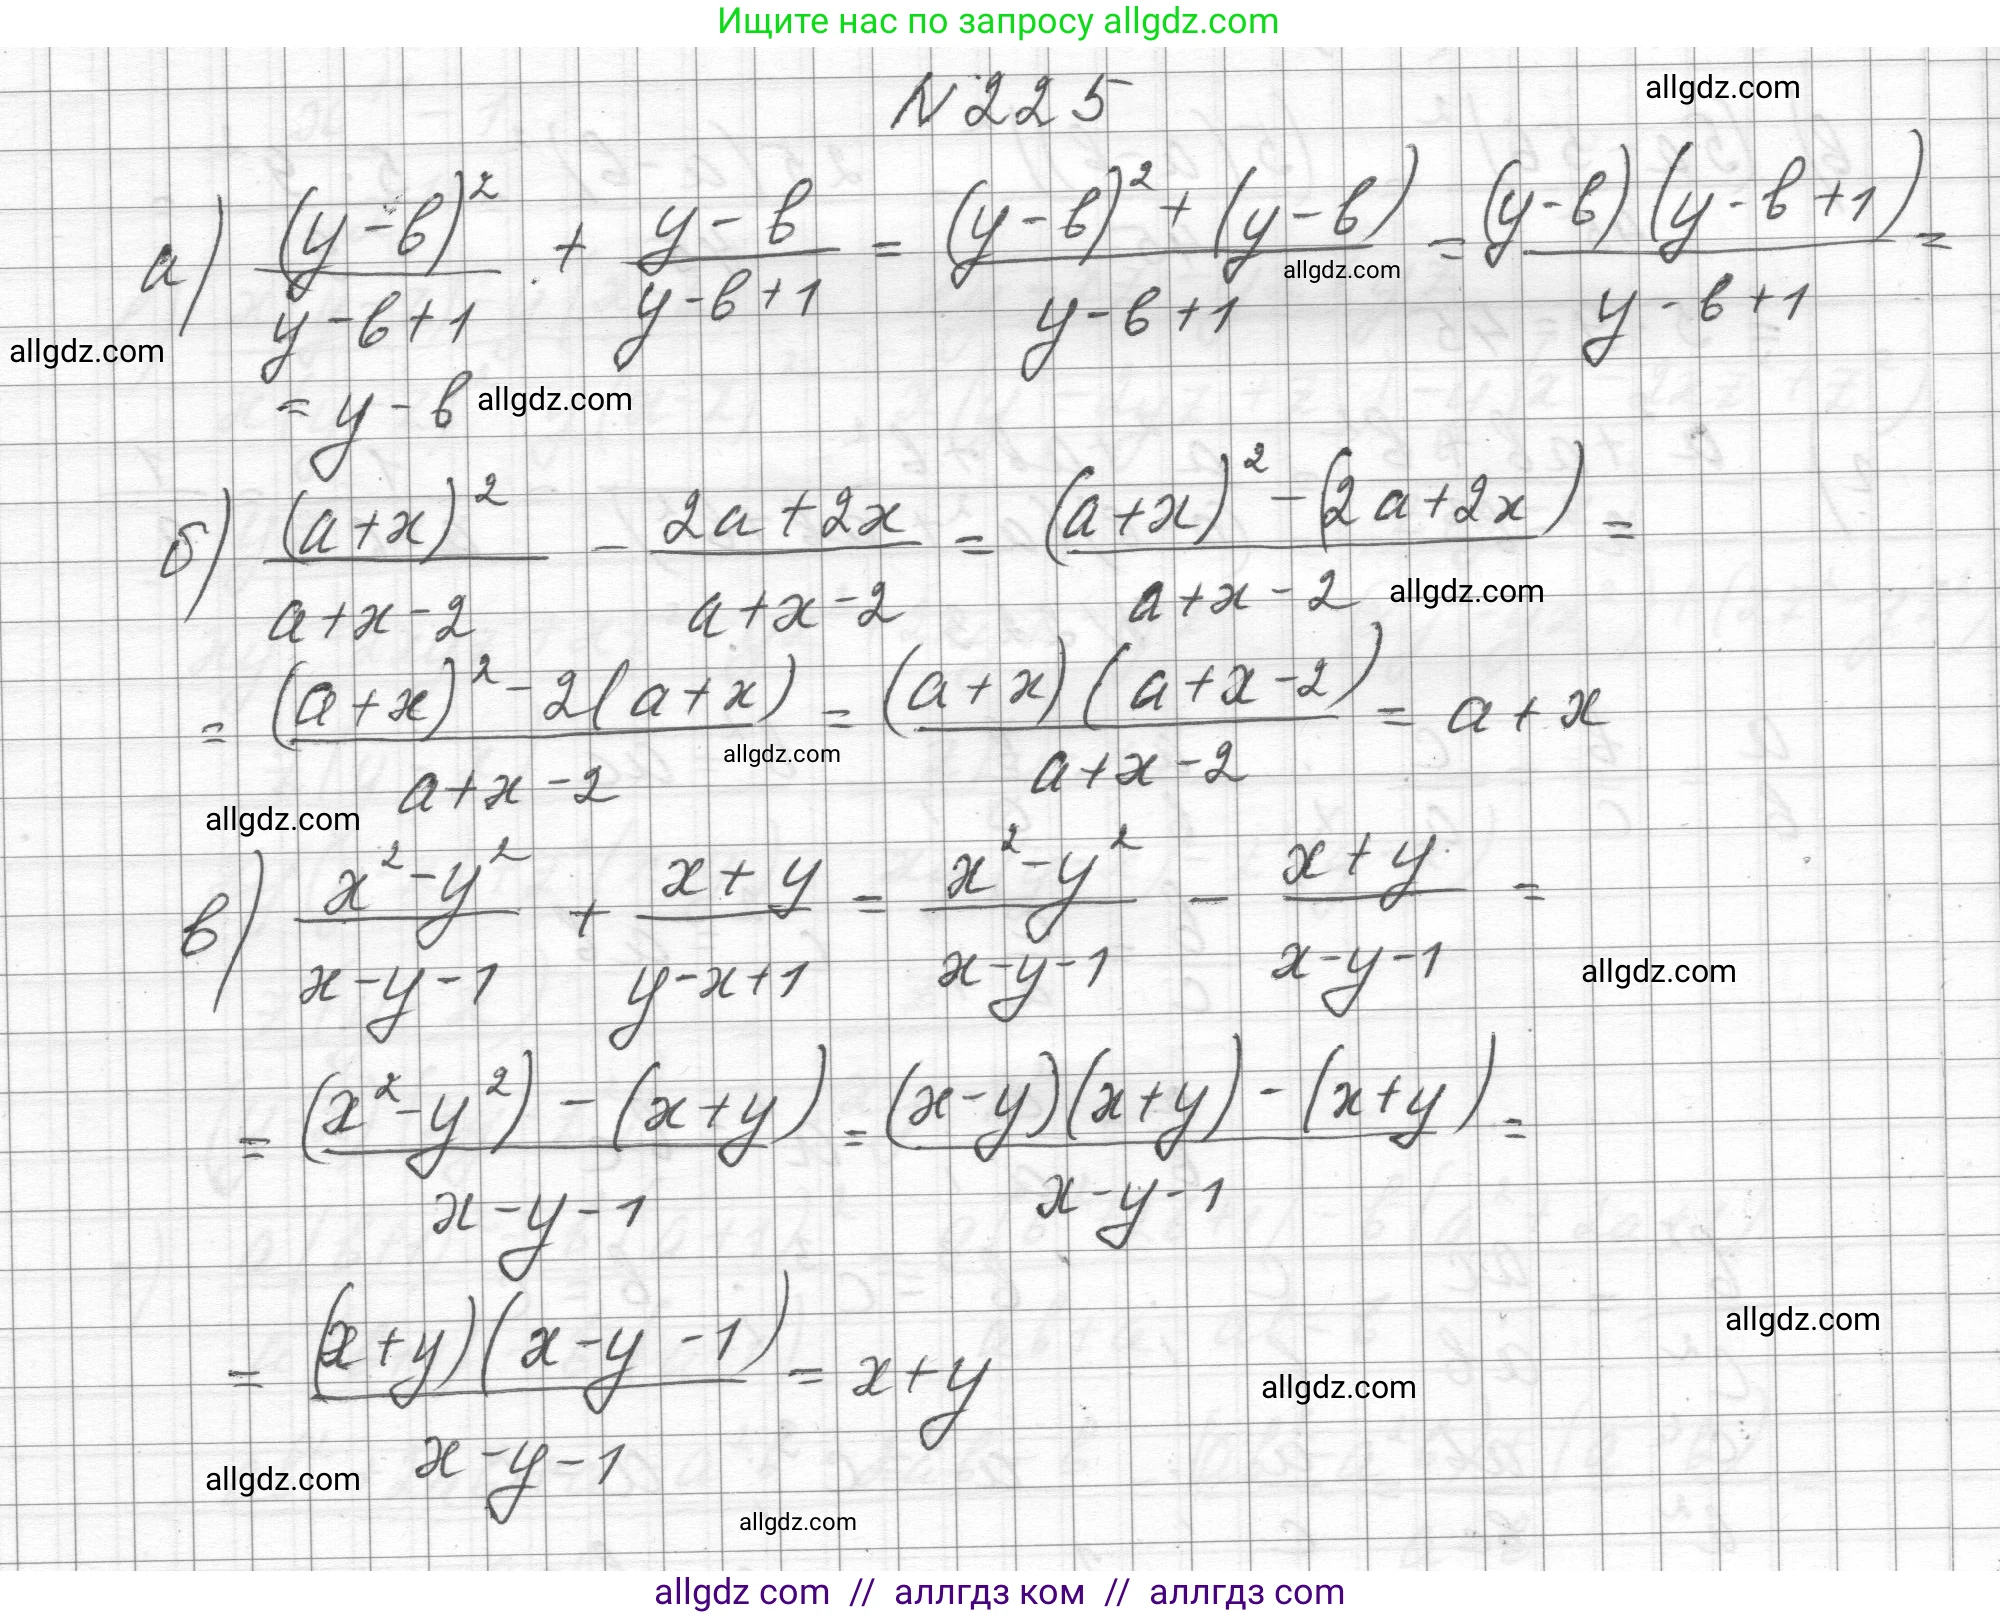 Ищите нас по запросу allgdz.com
N 225
allgdz.com
а) (y-b)²/(y-b+1) + (y-b)/(y-b+1) = ((y-b)²+(y-b))/(y-b+1) = (y-b)(y-b+1)/(y-b+1) =
allgdz.com
allgdz.com
= y-b
allgdz.com
б) (a+x)²/(a+x-2) - (2a+2x)/(a+x-2) = ((a+x)²-(2a+2x))/(a+x-2) =
allgdz.com
= ((a+x)²-2(a+x))/(a+x-2) = (a+x)(a+x-2)/(a+x-2) = a+x
allgdz.com
allgdz.com
в) (x²-y²)/(x-y-1) + (x+y)/(y-x+1) = (x²-y²)/(x-y-1) - (x+y)/(x-y-1) =
allgdz.com
= ((x²-y²)-(x+y))/(x-y-1) = ((x-y)(x+y)-(x+y))/(x-y-1) =
allgdz.com
= (x+y)(x-y-1)/(x-y-1) = x+y
allgdz.com
allgdz.com
allgdz.com
allgdz com // аллгдз ком // аллгдз com